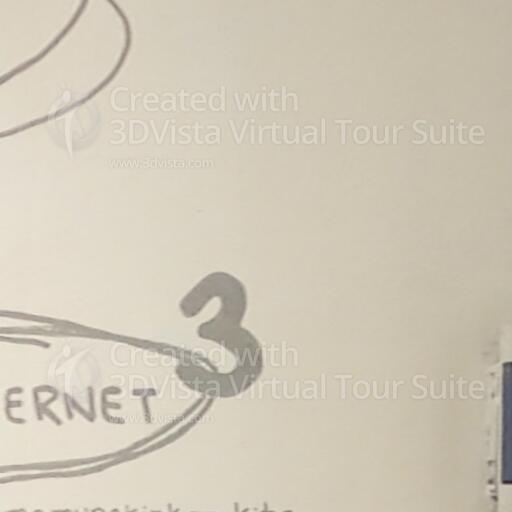 Created with
3DVista Virtual Tour Suite
www.3dvista.com
3
Created with
3DVista Virtual Tour Suite
ERNET
www.3dvista.com